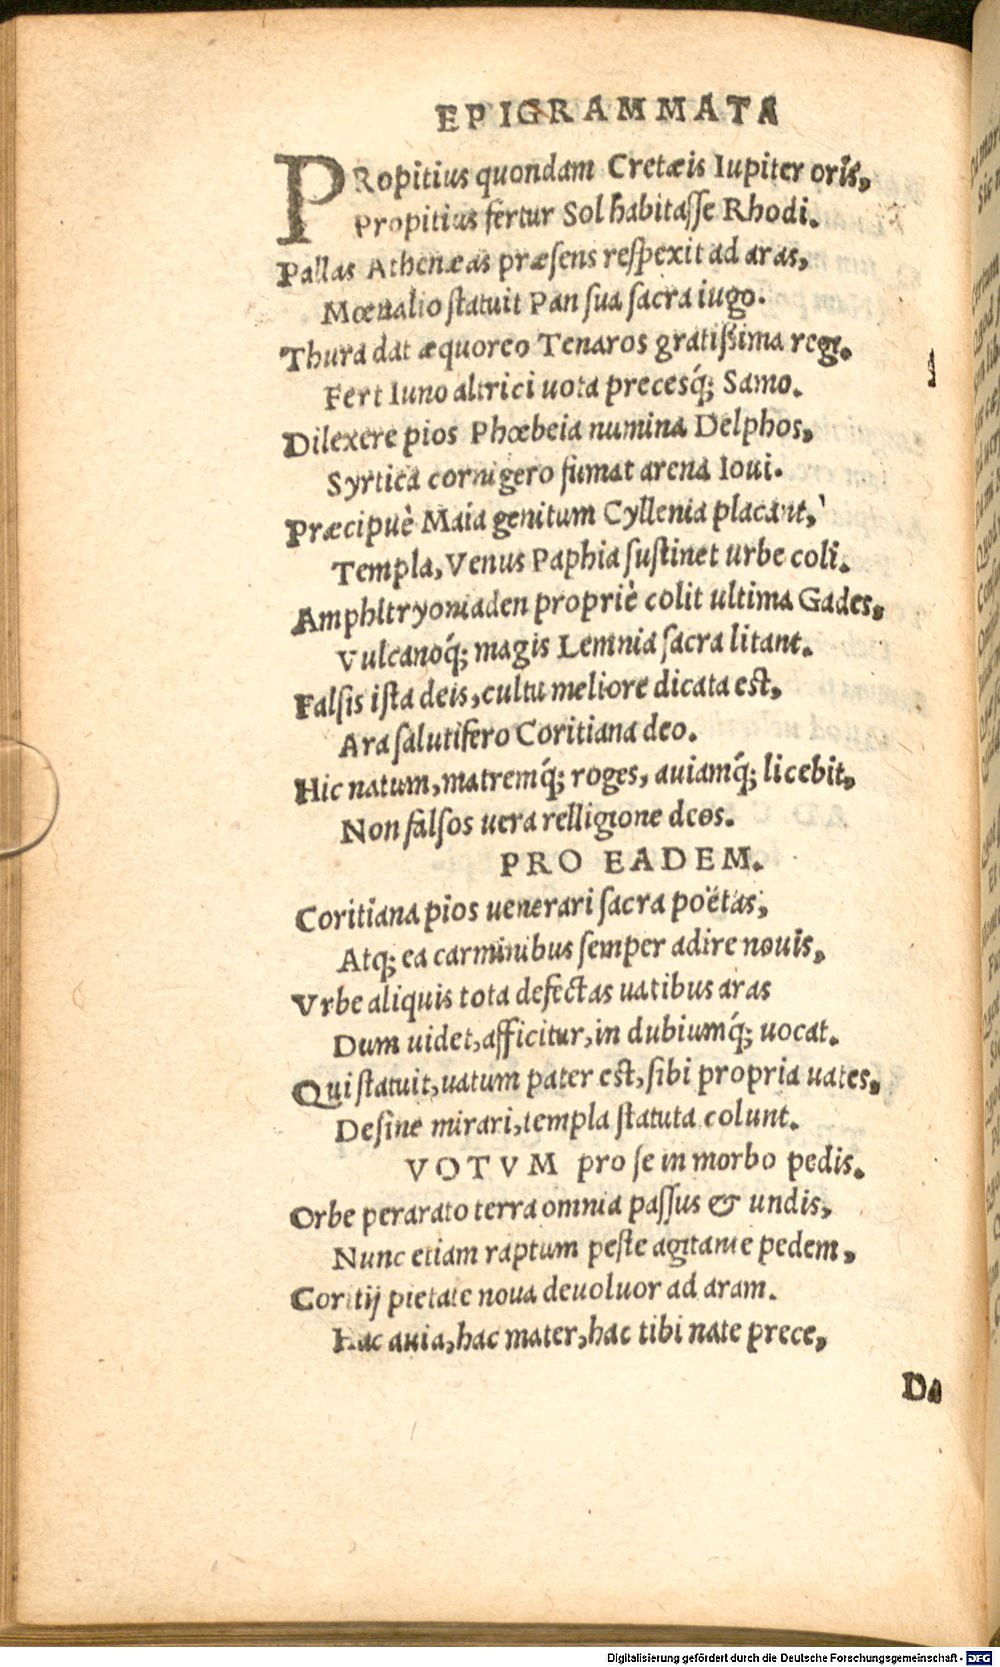 EPIGRAMMATA
PRopitius quondam Cretæis Iupiter oris,
Propitius fertur Sol habitasse Rhodi.
Pallas Athenæas præsens respexit ad aras,
Mœnalio statuit Pan sua sacra iugo.
Thura dat æquoreo Tenaros gratissima regi.
Fert Iuno altrici uota precesq́; Samo.
Dilexere pios Phœbeia numina Delphos,
Syrtica cornigero fumat arena Ioui.
Præcipuè Maia genitum Cyllenia placant,
Templa, Venus Paphia sustinet urbe coli.
Amphltryoniaden propriè colit ultima Gades,
Vulcanoq́; magis Lemnia sacra litant.
Falsis ista deis, cultu meliore dicata est,
Ara salutifero Coritiana deo.
Hic natum, matremq́; roges, auiamq́; licebit,
Non falsos uera relligione deos.
PRO EADEM.
Coritiana pios uenerari sacra poëtas,
Atq; ea carminibus semper adire nouis,
Vrbe aliquis tota defectas uatibus aras
Dum uidet, afficitur, in dubiumq́; uocat.
Qui statuit, uatum pater est, sibi propria uates,
Desine mirari, templa statuta colunt.
VOTVM pro se in morbo pedis.
Orbe perarato terra omnia passus & undis,
Nunc etiam raptum peste agitante pedem,
Coritij pietate noua deuoluor ad aram.
Hac auia, hac mater, hac tibi nate prece,
Da
Digitalisierung gefördert durch die Deutsche Forschungsgemeinschaft - DFG